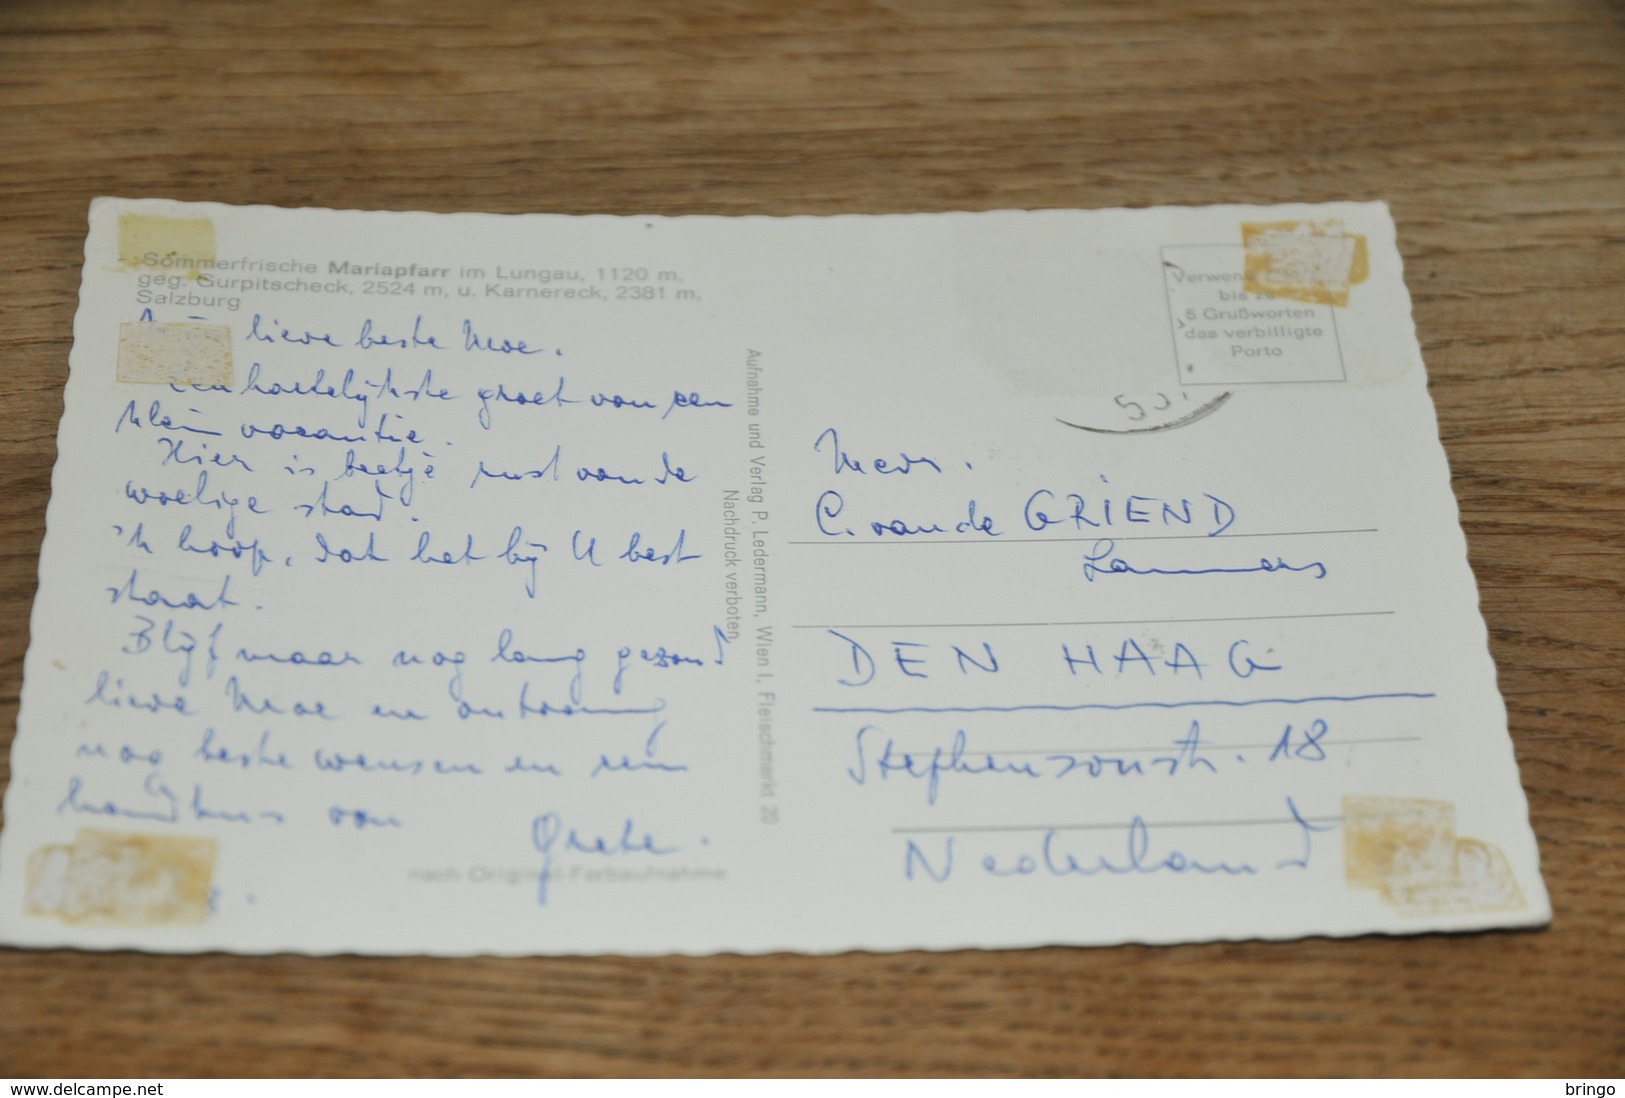 Sommerfrische Mariapfarr im Lungau, 1120 m,
geg. Gurpitscheck, 2524 m, u. Karnereck, 2381 m,
Salzburg
lieve beste Moe.
een hartelijkste groet van een
klein vacantie.
Hier is beetje rust van de
woelige stad.
'k hoop, dat het bij U best
staat.
Blijf maar nog lang gezond
lieve Moe en ontvang
nog beste wensen en een
handkus von
Grete.
nach Original-Farbaufnahme
Aufnahme und Verlag P. Ledermann, Wien I, Fleischmarkt 20
Nachdruck verboten
Verwen
bis zu
5 Grußworten
das verbilligte
Porto
Mevr.
C. van de GRIEND
Lammers
DEN HAAG
Stephensonstr. 18
Nederland
www.delcampe.net
bringo